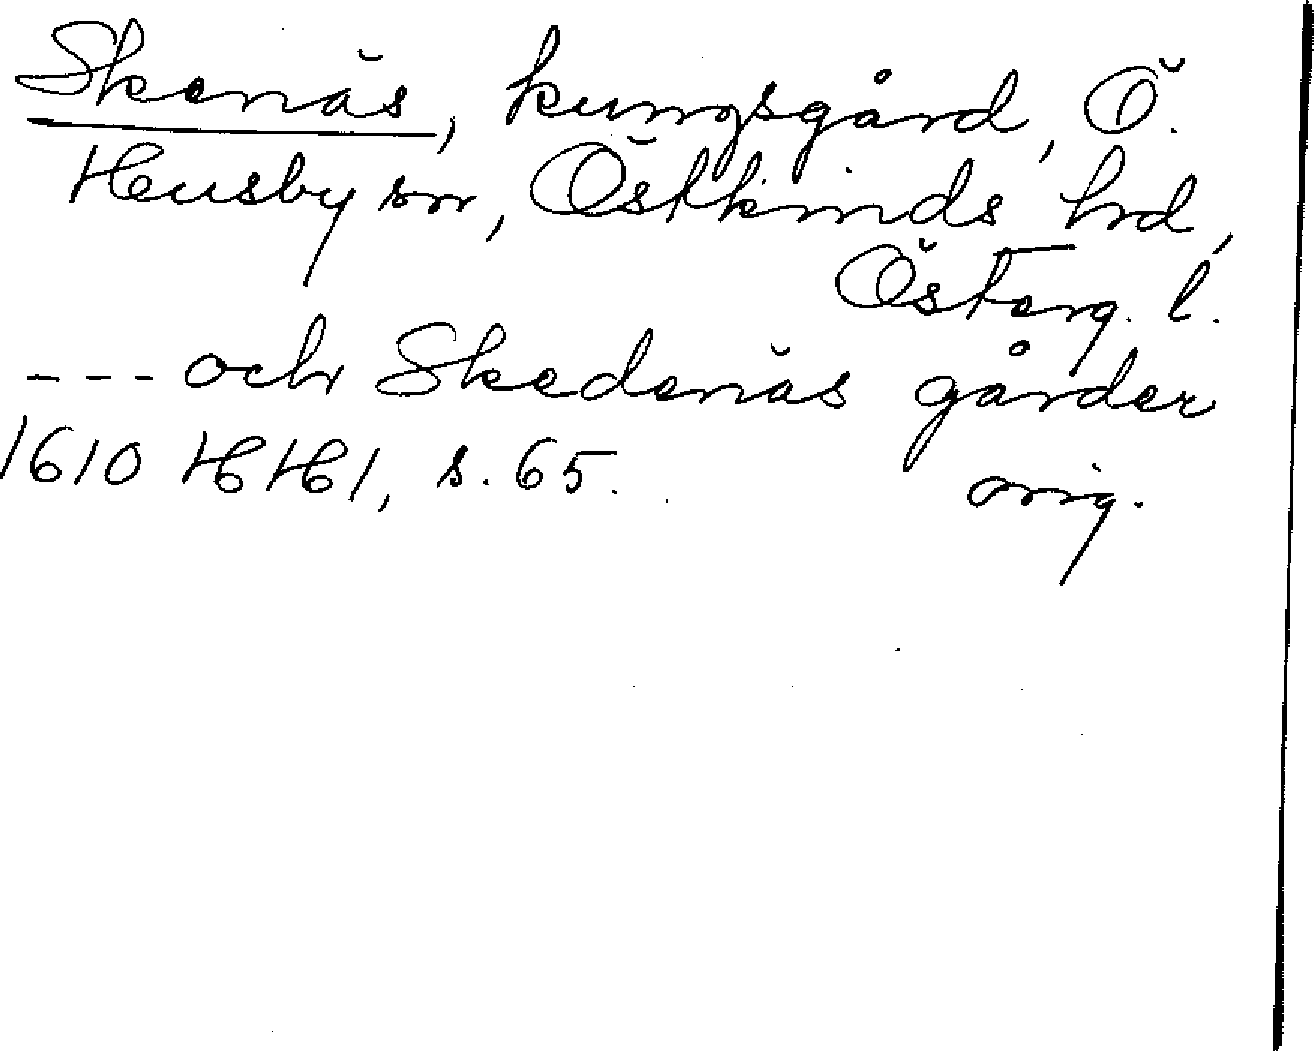 Skenäs, kungsgård, Ö.
Husby sn, Östkinds hd,
Österg. l.
--- och Skedenäs gårder
1610 HH1, s. 65.
orig.